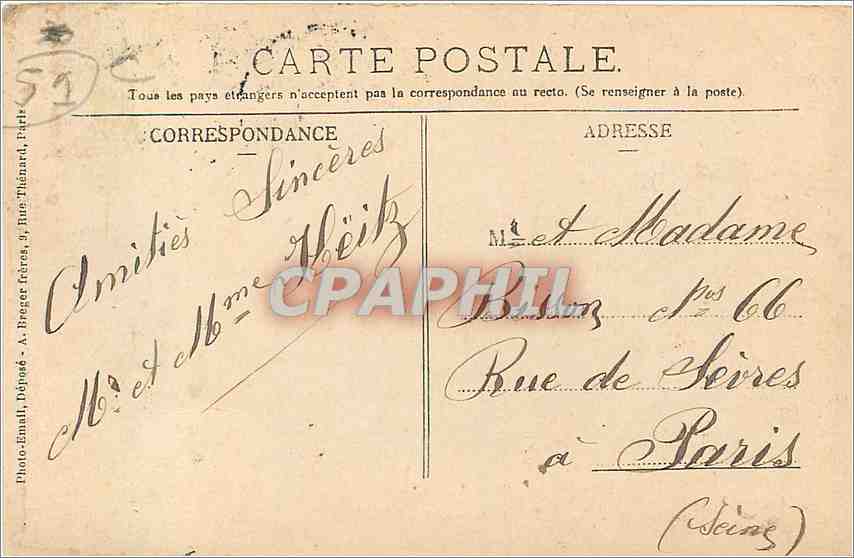 51
CARTE POSTALE.
Tous les pays étrangers n'acceptent pas la correspondance au recto. (Se renseigner à la poste).
CORRESPONDANCE
Amitiés Sincères
Mr et Mme Hëitz
Photo-Email, Déposé - A. Breger frères, 9, Rue Thénard, Paris
CPAPHIL
ADRESSE
Mr et Madame
66
Rue de Sèvres
à Paris
(Seine)